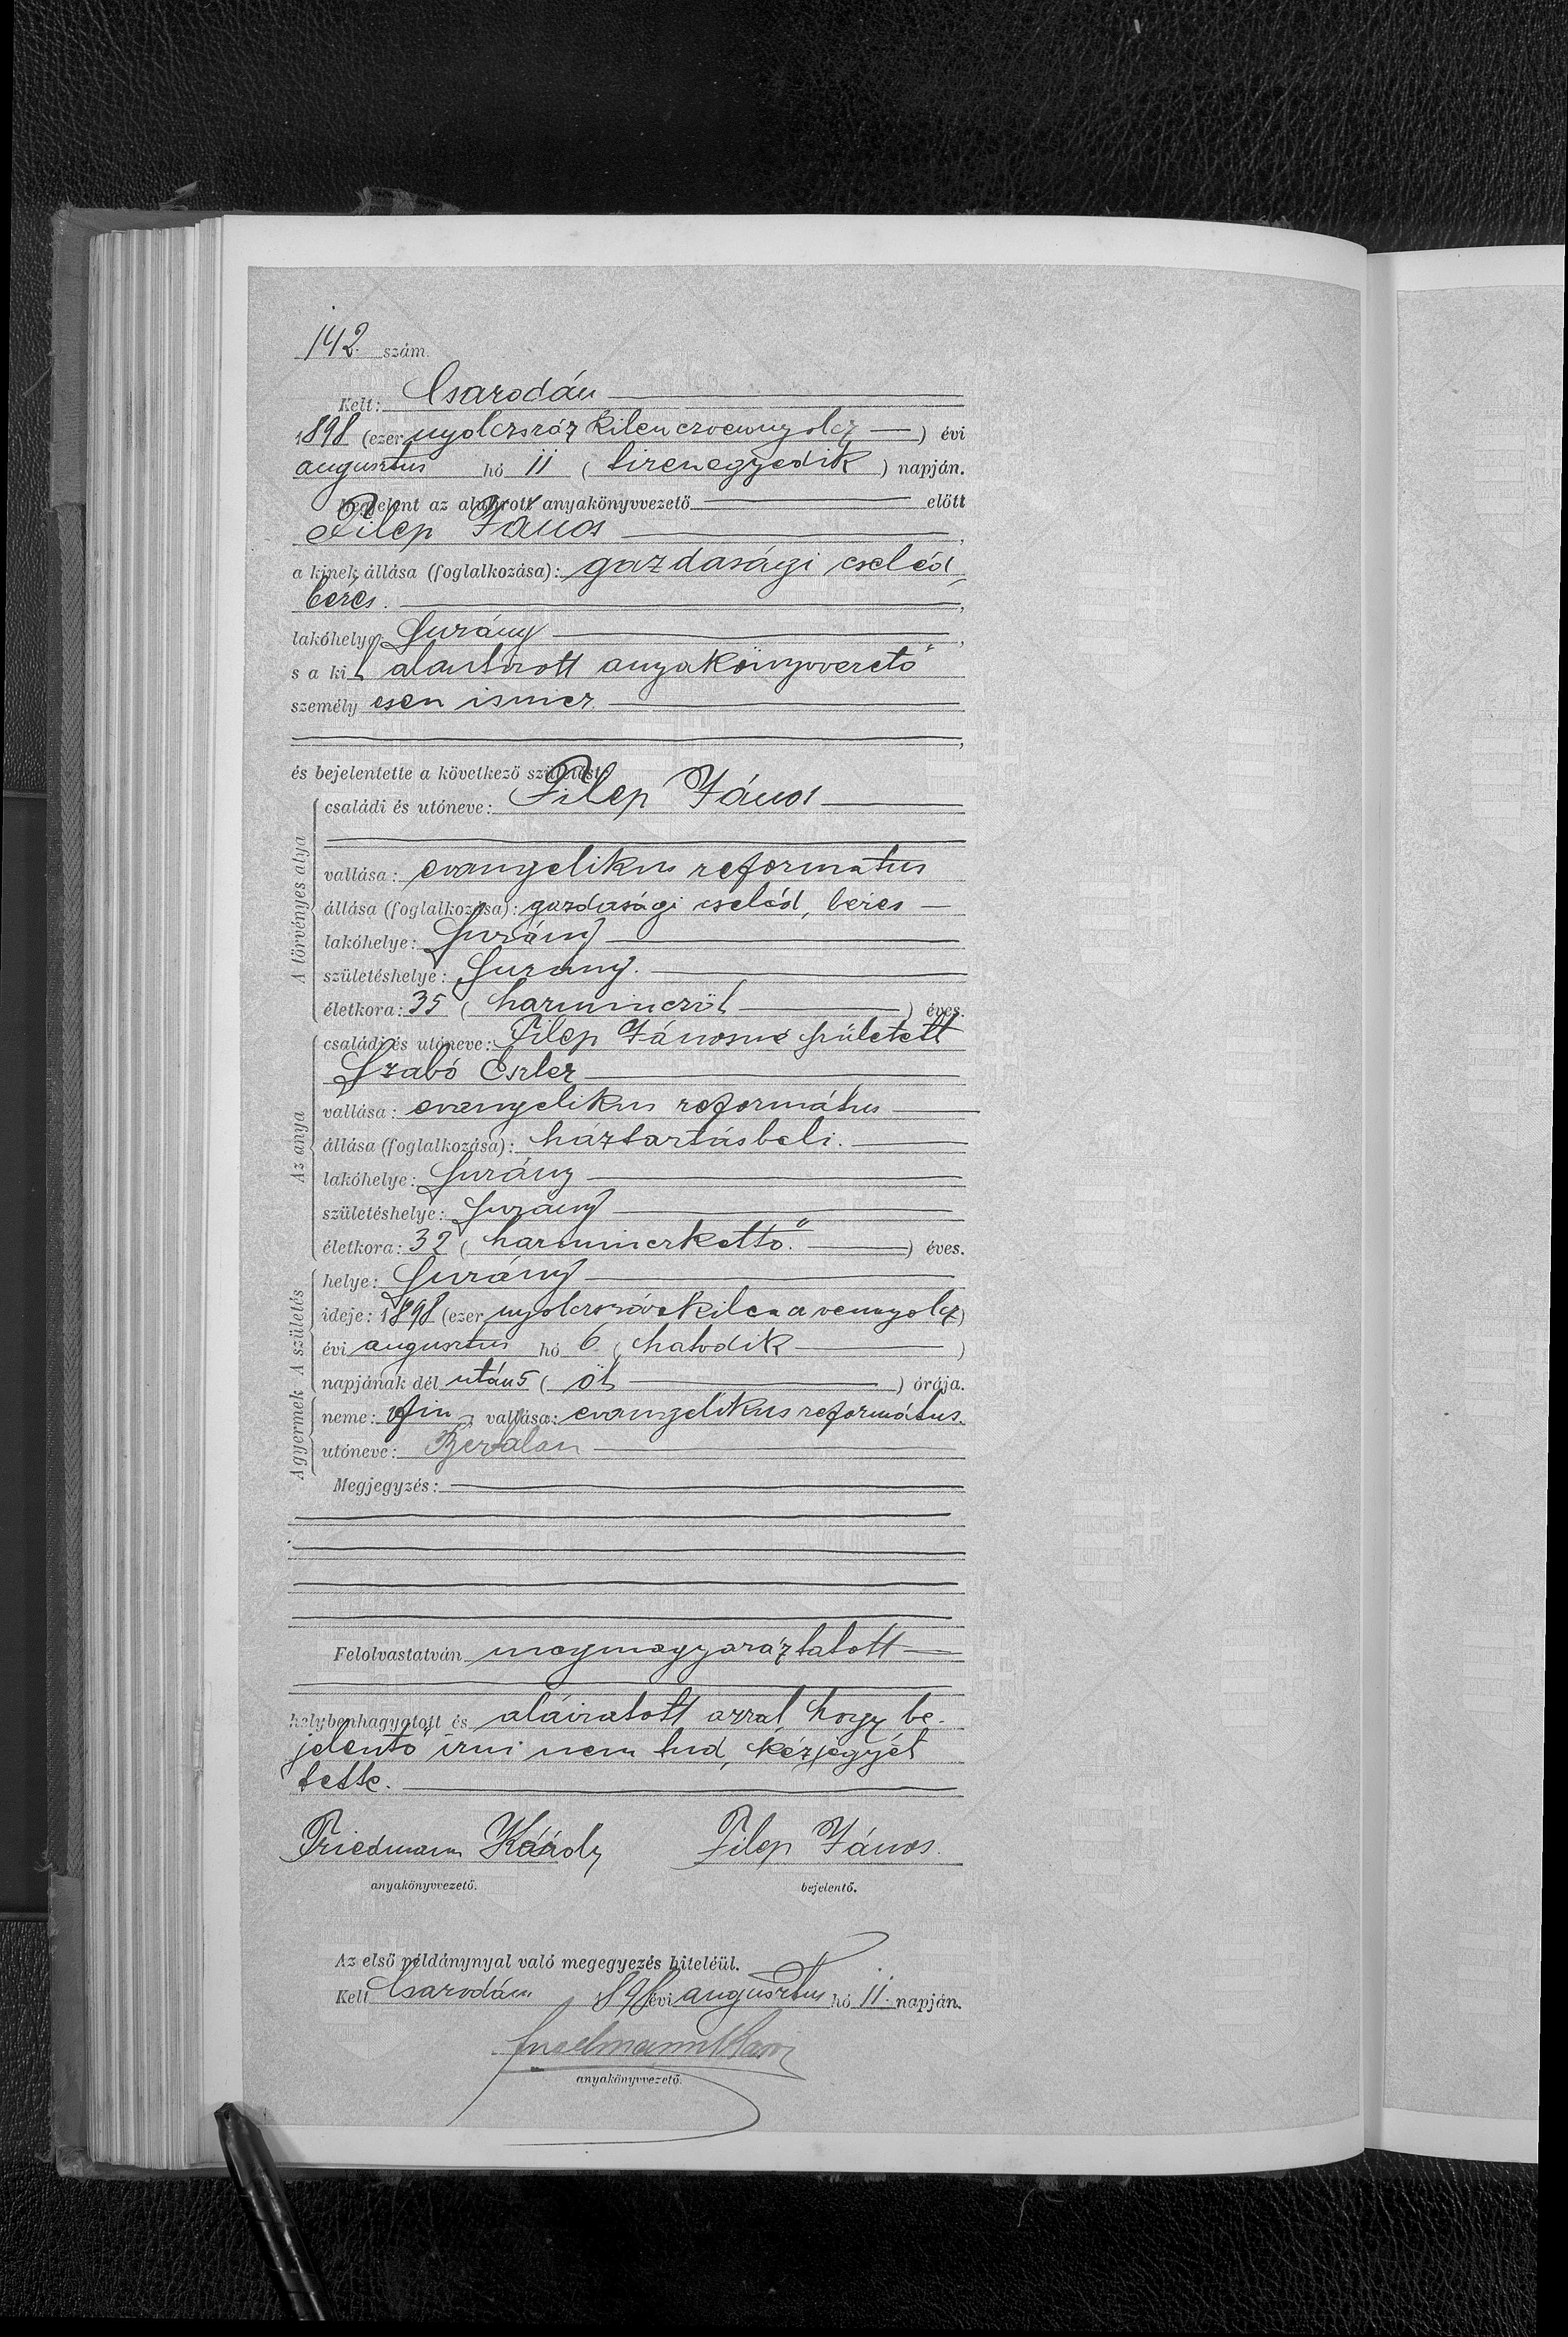 142. szám.
Kelt: Csarodán
1898 (ezer nyolczszáz kilenczvennyolcz) évi
augusztus hó 11 (tizenegyedik) napján.
Megjelent az alulirott anyakönyvvezető előtt
Filep János,
a kinek állása (foglalkozása): gazdasági cseléd,
béres.,
lakóhelye: Surány,
s a kit alantirott anyakönyvvezető
személyesen ismer.
és bejelentette a következő születést:
A törvényes atya
családi és utóneve: Filep János
vallása: evangelikus reformatus
állása (foglalkozása): gazdasági cseléd, béres
lakóhelye: Surány
születéshelye: Surany.
életkora: 35 (harminczöt) éves.
Az anya
családi és utóneve: Filep Jánosné született
Szabó Eszter
vallása: evangelikus református
állása (foglalkozása): háztartásbeli.
lakóhelye: Surány
születéshelye: Surány
életkora: 32 (harminczkettő.) éves.
A születés
helye: Surány
ideje: 1898 (ezer nyolczszázkilenczvennyolcz)
évi augusztus hó 6 (hatodik)
napjának dél után 5 (öt) órája.
A gyermek
neme: fiu; vallása: evangelikus református.
utóneve: Bertalan
Megjegyzés:
Felolvastatván megmagyaráztatott
helybenhagyatott és aláiratott azzal hogy be-
jelentő irni nem tud, kézjegyét
tette.
Friedmann Károly Filep János.
anyakönyvvezető. bejelentő.
Az első példánynyal való megegyezés hiteléül.
Kelt Csarodán 1898 évi augusztus hó 11. napján.
anyakönyvvezető.